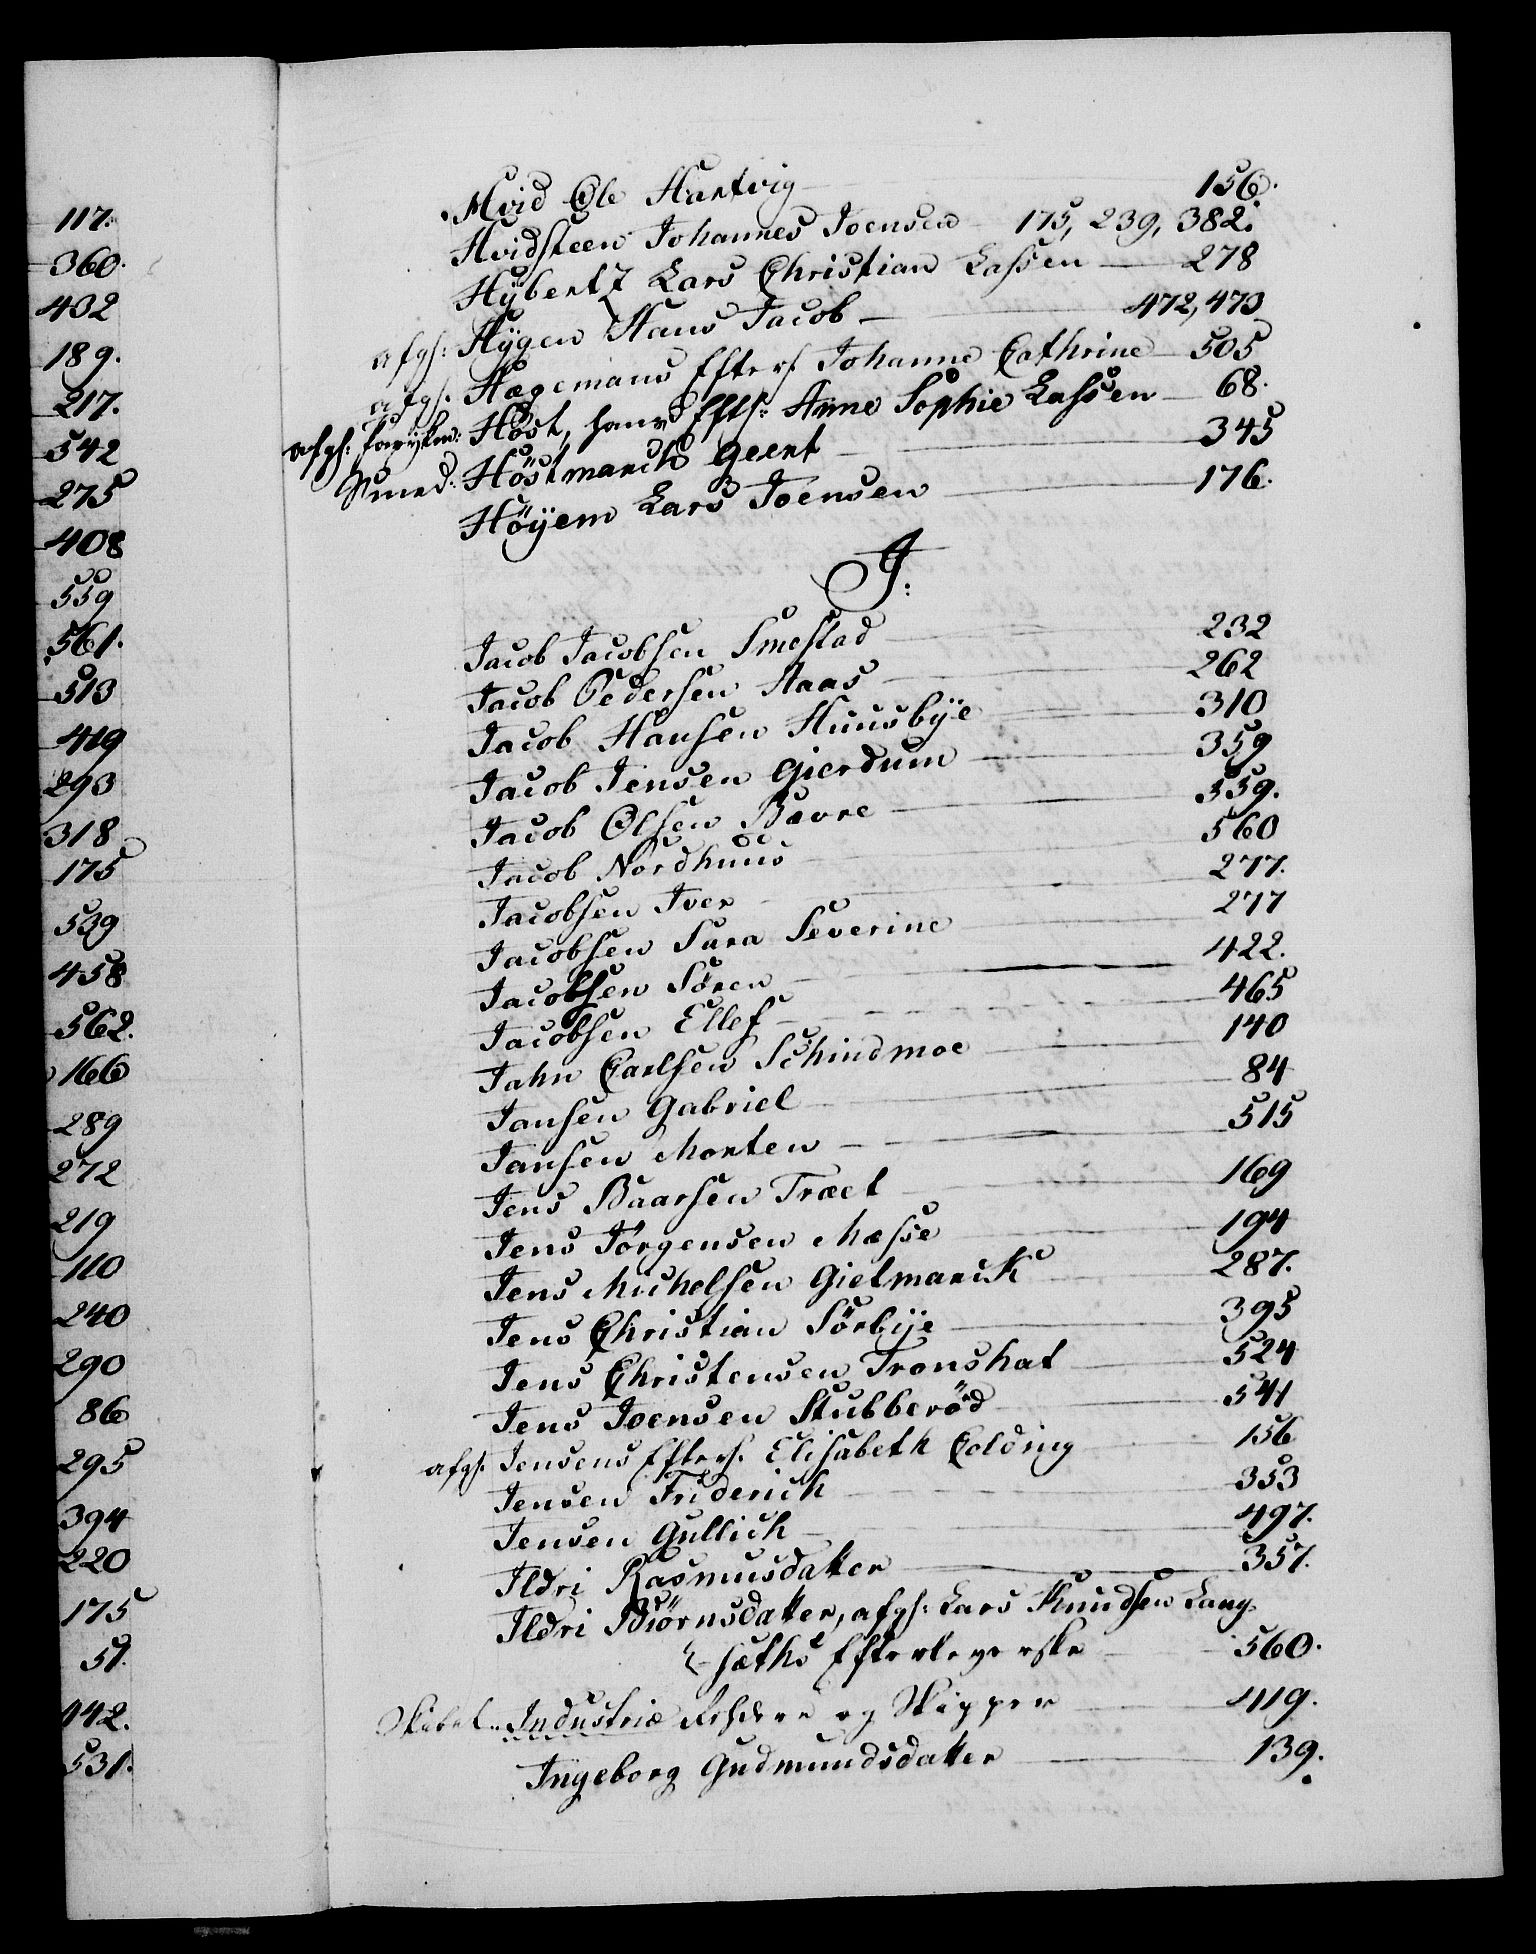 117.
360.
432
189.
217.
542
275
408
559
561.
513
419
293
318
175
539
458
562.
166
289
272
219
110
240
290
86
295
394
220
175
51.
142.
531.
Hvid Ole Hartvig 156.
Hvidsteen Johannes Joensen 175, 239, 382.
Hÿbertz Lars Christian Lassen 278
afgs: Hÿgen Hans Jacob 472, 473
afgs. Hagemans Efters. Johanne Cathrine 505
afgs: Höst, hans Efts: Anne Sophie Lassen 68.
Smed: Höstmarck Geert 345
Höÿem Lars Joensen 176.
J:
Jacob Jacobsen Smestad 232
Jacob Pedersen Aaas 262
Jacob Hansen Huusbÿe 310
Jacob Jensen Gierdum 359
Jacob Olsen Bævre 559.
Jacob Nordhuus 560
Jacobsen Iver 277.
Jacobsen Sara Severine 277
Jacobsen Sören 422.
Jacobsen Ellef 465
Jahn Carlsen Schindmoe 140
Jansen Gabriel 84
Jansen Morten 515
Jens Baarsen Træet 169
Jens Jörgensen Mæsse 194
Jens Michelsen Gietmarck 287.
Jens Christian Sörbÿe 395
Jens Christensen Tronshat 524
Jens Joensen Stubberöd 541
afgs. Jensens Efters. Elisabeth Colding 156
Jensen Friderich 353
Jensen Gullich 497.
Ildri Rasmusdatter 357.
Ildri Biörnsdatter, afgs: Lars Knudsen Lang-
sæths Efterleverske 560.
Skibet Industrie Rhedere og Skipper 419.
Ingeborg Gudmundsdatter 139.